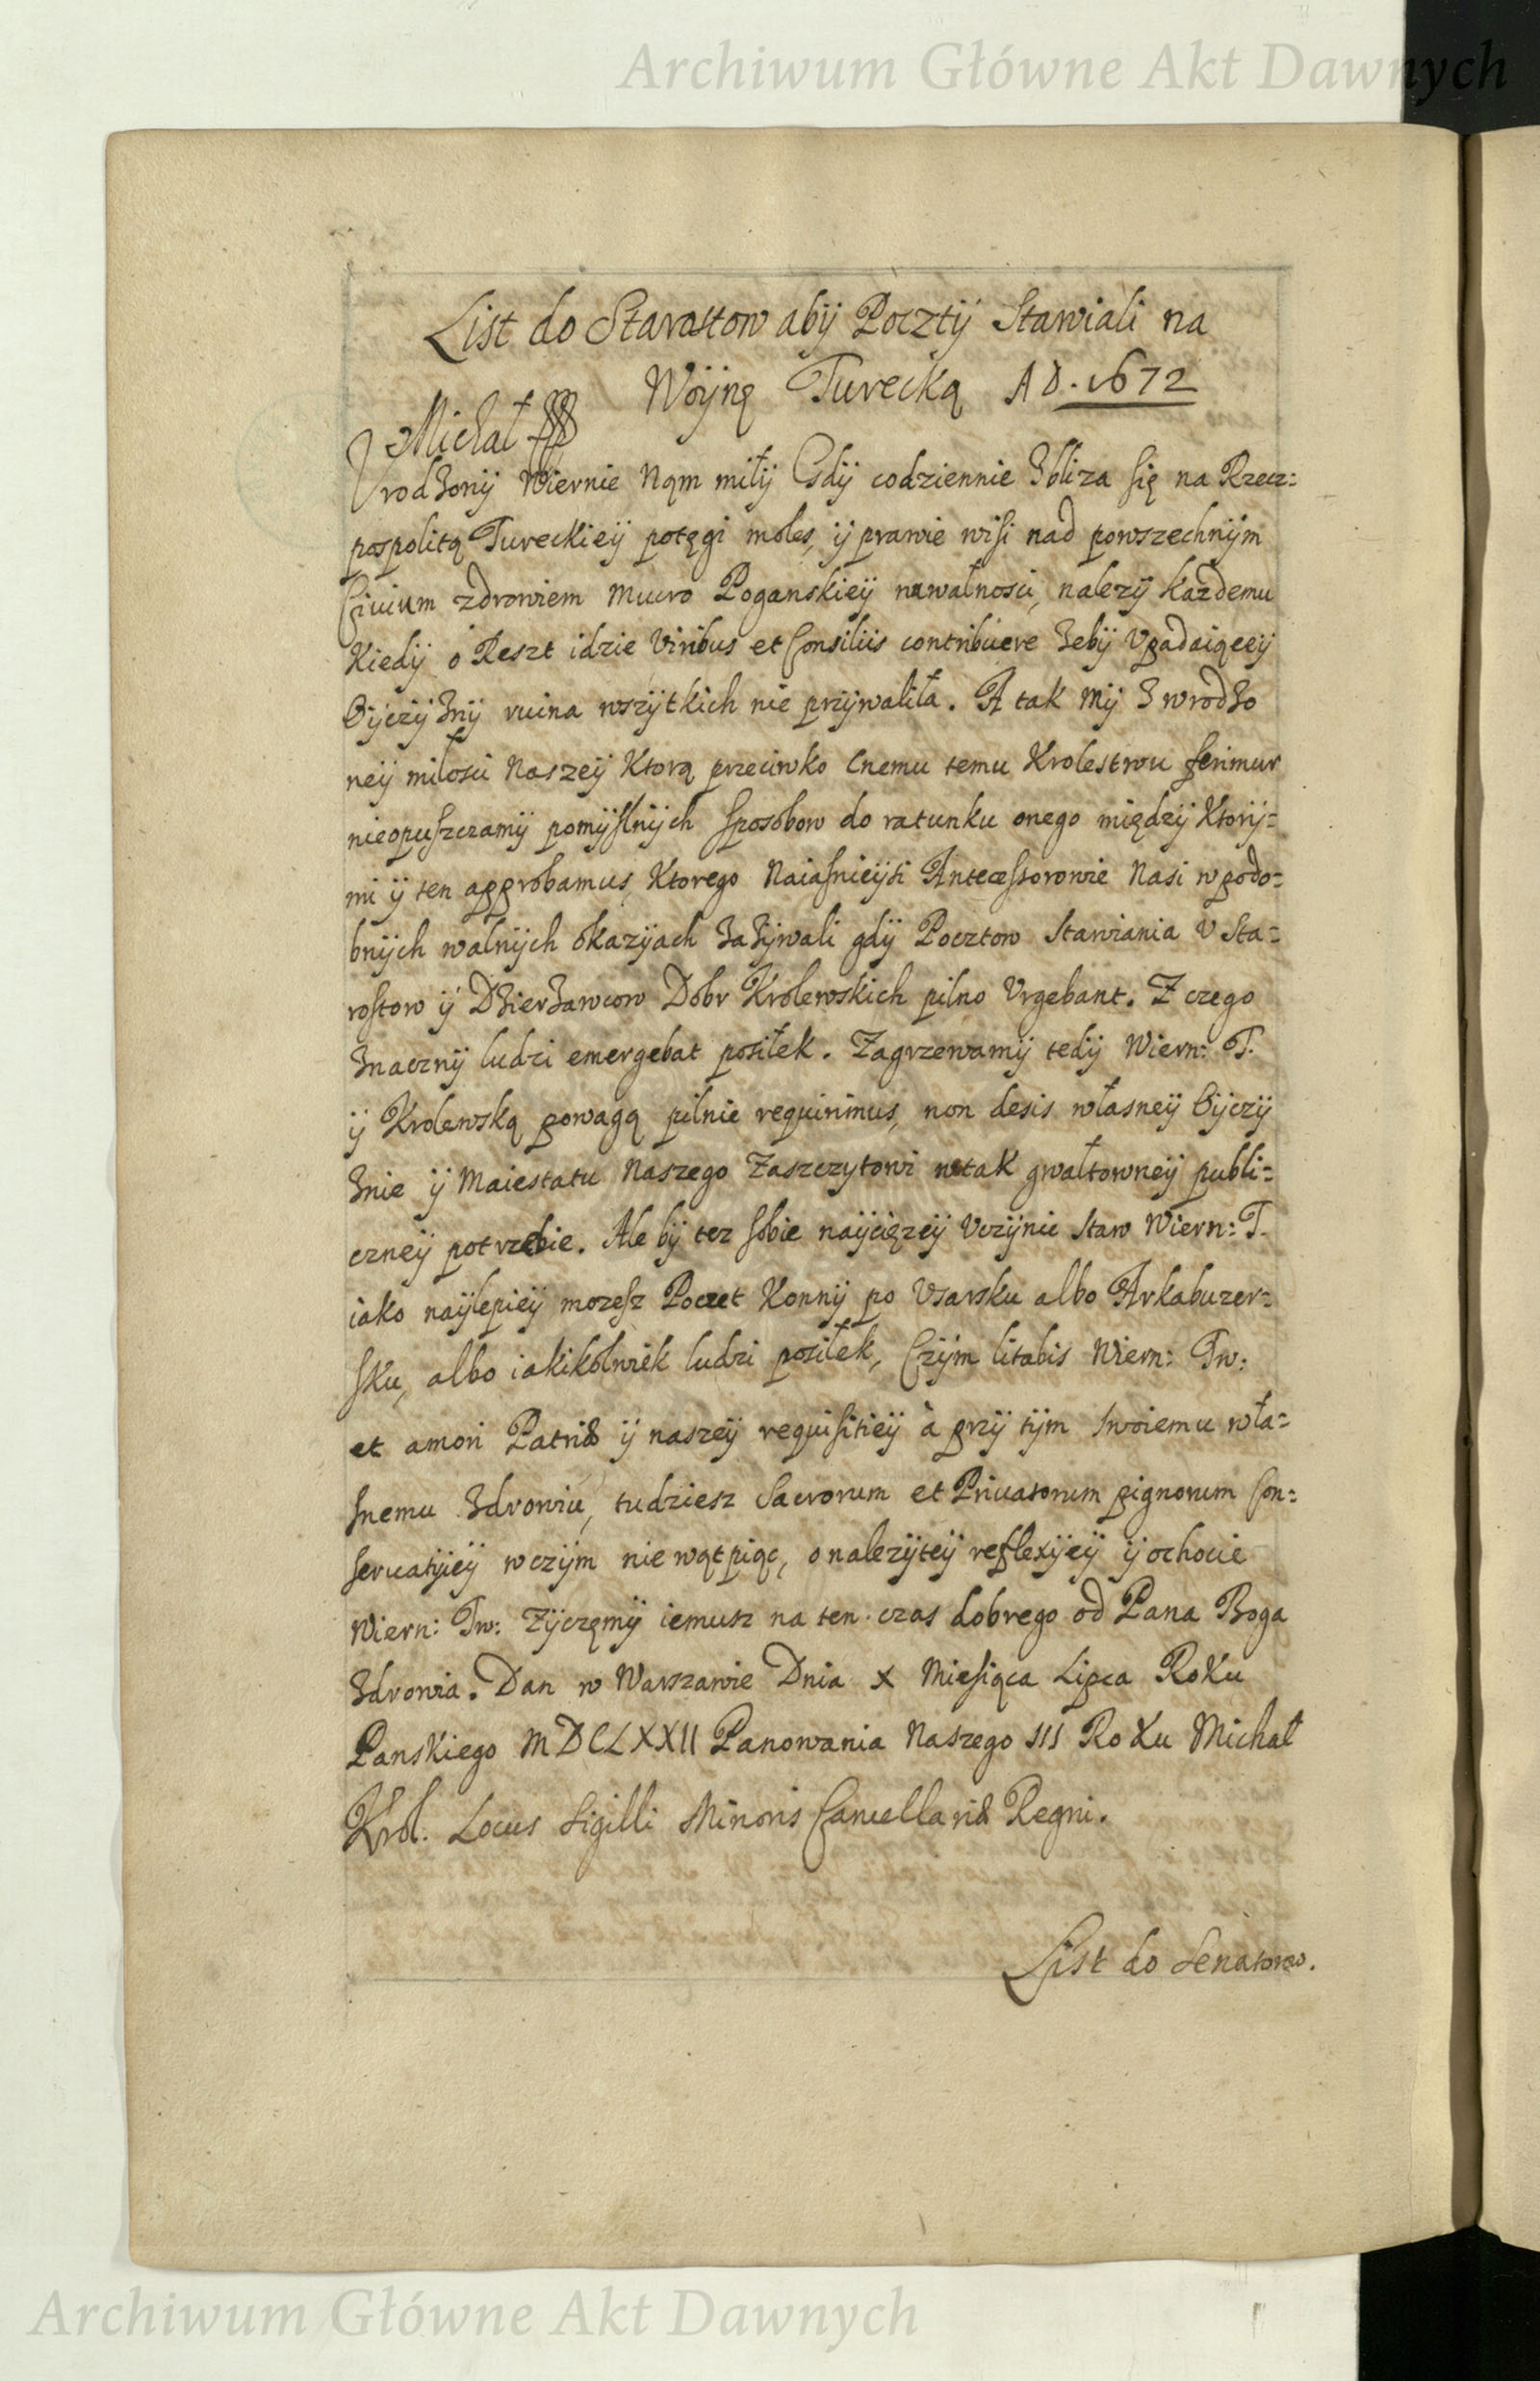 Archiwum Główne Akt Dawnych
List do Starostow abÿ Pocztÿ Stawiali na
Woÿnę Turecką AD. 1672
Michał
Vrodzonÿ Wiernie Nąm miłÿ Gdÿ codziennie Zbliza się na Rzecz=
pospolitą Tureckieÿ potęgi moles, ÿ prawie wisi nad powszechnÿm
Ciuium zdrowiem mucro Poganskieÿ nawałnosci, nalezÿ kazdemu
Kiedÿ o Reszt idzie Viribus et Consiliis contribuere Zebÿ Vpadaiąceÿ
Oÿczÿznÿ ruina wszÿtkich nie przÿwaliła. A tak mÿ z wrodzo
neÿ miłosci Naszeÿ Ktorą przeciwko Cnemu temu Krolestwu ferimur
nieopuszczamÿ pomÿslnÿch sposobow do ratunku onego międzÿ Ktorÿ=
mi ÿ ten approbamus, Ktorego Naiasnieÿsi Antecessorowie Nasi w podo=
bnÿch walnÿch okazÿach zazÿwali gdÿ Pocztow Stawiania V Sta=
rostow ÿ Dzierzawcow Dobr Krolewskich pilno Vrgebant. Z czego
Znacznÿ ludzi emergebat posiłek. Zagrzewamÿ tedÿ Wiern: T.
ÿ Krolewską powagą pilnie requirimus, non desis własneÿ Oÿczÿ
znie ÿ Maiestatu Naszego Zaszczytowi w tak gwałtowneÿ publi=
czneÿ potrzebie. Ale bÿ tez sobie naÿcięzeÿ Vczÿnic Staw Wiern: T.
iako naÿlepieÿ mozesz Poczet Konnÿ po Vsarsku albo Arkabuzer=
sku, albo iakikolwiek ludzi posiłek, Czÿm litabis Wiern: Tw:
et amori Patriæ ÿ naszeÿ requisitieÿ à przÿ tÿm swoiemu wła=
snemu Zdrowiu, tudziesz Sacrorum et Priuatorum pignorum Con=
seruatÿieÿ w czÿm nie wątpiąc, o nalezÿteÿ reflexÿeÿ ÿ ochocie
Wiern: Tw: Zÿczęmÿ iemusz na ten czas dobrego od Pana Boga
Zdrowia. Dan w Warszawie Dnia X Miesiąca Lipca Roku
Panskiego MDCLXXII Panowania Naszego III Roku Michał
Krol. Locus Sigilli Minoris Cancellariæ Regni.
List do Senatorow.
Archiwum Główne Akt Dawnych